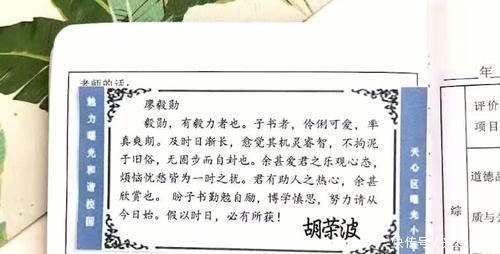 老师的话：
魅力曙光和谐校园
廖毅勋
毅勋，有毅力者也。子书者，伶俐可爱，率
真爽朗。及时日渐长，愈觉其机灵睿智，不拘泥
于旧俗，无固步而自封也。余甚爱君之乐观心态，
烦恼忧愁皆为一时之扰。君有助人之热心，余甚
欣赏也。 盼子书勤勉自励，博学慎思，努力请从
今日始。假以时日，必有所获！
胡荣波
天心区曙光小
年
评价
项目
道德品
质与公
综
合
快传号